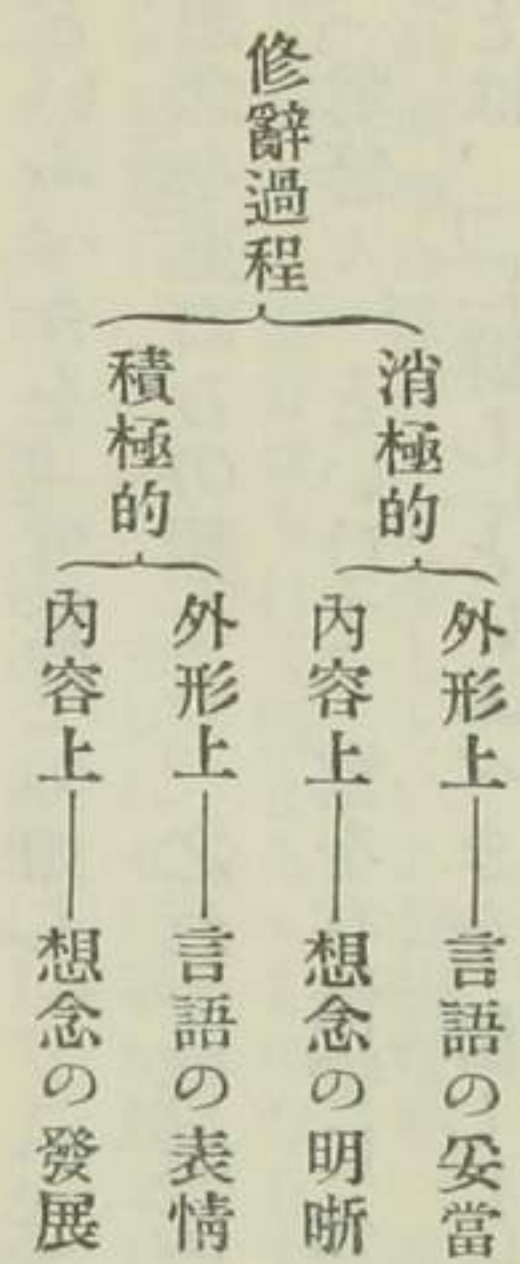 修辭過程
消極的
外形上――言語の妥當
內容上――想念の明晰
積極的
外形上――言語の表情
內容上――想念の發展